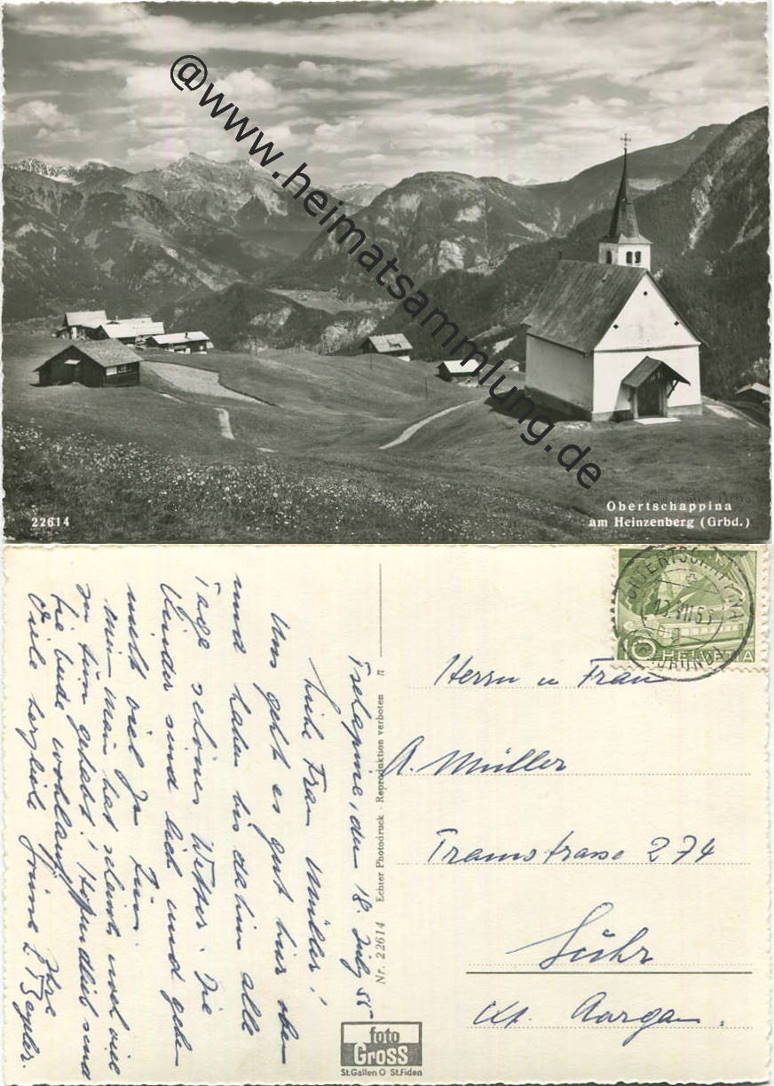 @www.heimatsammlung.de
Obertschappina
am Heinzenberg (Grbd.)
22614
OBERTSCHAPPINA
HELVETIA
10
Tschappina, den 18. July 55
Liebe Frau Müller!
Uns geht es gut hier oben
und haben bis dahin alle
Tage schönes Wetter. Die
Kinder sind lieb und geben
nicht viel zu tun.
Mir man hat scheints viel
zu tun gehabt! Hoffentlich sind
Sie beide wohlauf.
Viele herzliche Grüsse Ihre
Nr. 22614 Echter Photodruck - Reproduktion verboten n
Herrn u Frau
A. Müller
Tramstrasse 274
Suhr
Kt. Aargau.
foto
GROSS
St.Gallen O St.Fiden